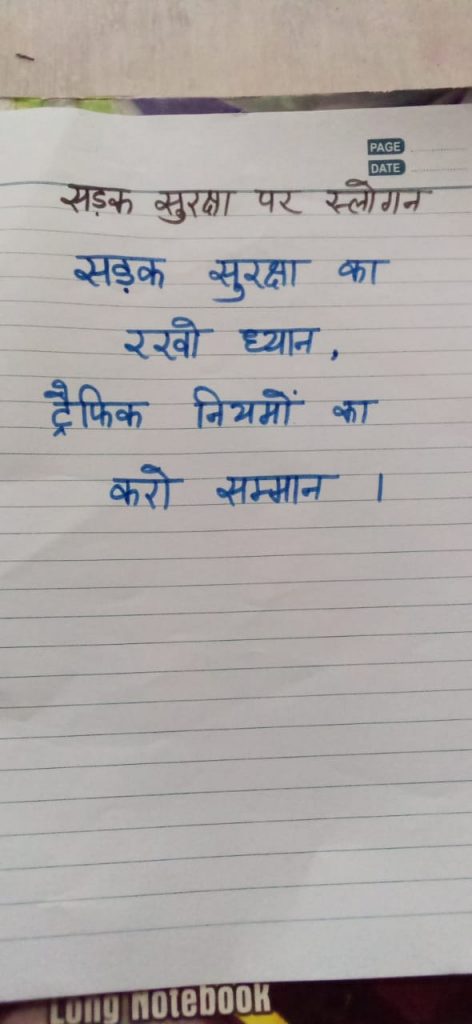 PAGE
DATE
सड़क सुरक्षा पर स्लोगन
सड़क सुरक्षा का
रखो ध्यान,
ट्रैफिक नियमों का
करो सम्मान ।
Long Notebook